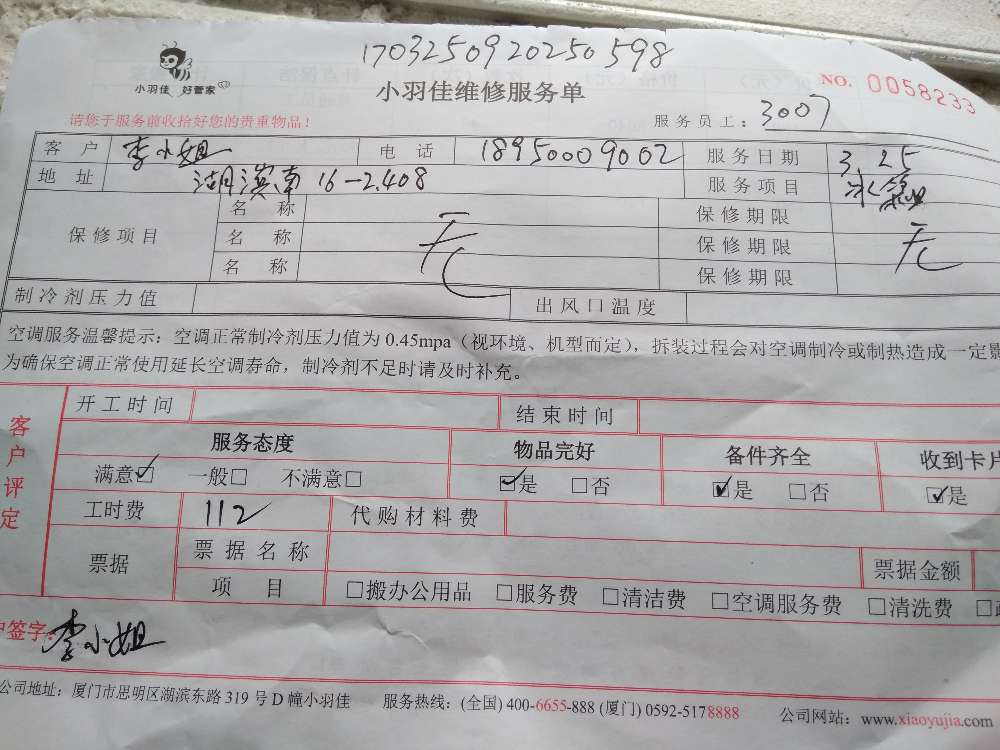 1703250920250598
小羽佳 好管家
小羽佳维修服务单
NO. 0058233
请您于服务前收拾好您的贵重物品！
服务员工：3007
客 户 李小姐 电 话 18950009002 服务日期 3.25
地 址 湖滨南16-2.408 服务项目 冰箱
保修项目 名 称 无 保修期限 无
名 称 保修期限
名 称 保修期限
制冷剂压力值 出风口温度
空调服务温馨提示：空调正常制冷剂压力值为 0.45mpa（视环境、机型而定），拆装过程会对空调制冷或制热造成一定影
为确保空调正常使用延长空调寿命，制冷剂不足时请及时补充。
客户评定
开工时间 结束时间
服务态度 物品完好 备件齐全 收到卡片
满意☑ 一般□ 不满意□ ☑是 □否 ☑是 □否 ☑是
工时费 112 代购材料费
票据 票据名称 票据金额
项 目 □搬办公用品 □服务费 □清洁费 □空调服务费 □清洗费 □
户签字：李小姐
公司地址：厦门市思明区湖滨东路 319 号 D 幢小羽佳 服务热线：(全国) 400-6655-888 (厦门) 0592-5178888 公司网站：www.xiaoyujia.com